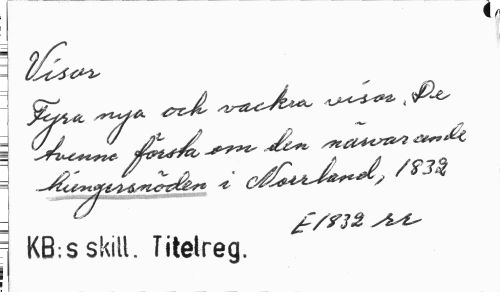 Visor
Fyra nya och vackra visor. De
tvenne första om den närvarande
hungersnöden i Norrland, 1832
E 1832 rr
KB:s skill. Titelreg.